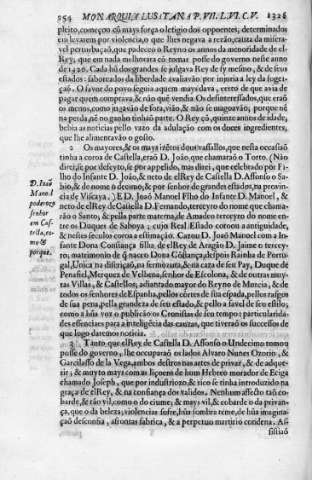 354 MONARQUIA LUSITANA P. VII. L. VI. C. V. 1326
pleito, começou cõ mays força o lefigio dos opponentes, determinados
em levarem por violencia, o que lhes negava a rezão, causa da misera-
vel perturbação, que padeceo o Reyno os annos da menoridade del-
Rey, que em nada melhorou cõ tomar posse do governo neste anno
de 1326. Cada hũ dos grandes se julgava Rey de sy mesmo, & de seus
estados: saboreados da liberdade avaliavão por injuria a ley da sogey-
çaõ. O favor do povo seguia aquem mays dava, certo de que avia de
pagar quem comprava, & não quẽ vendia. Os desinteressados, que eraõ
os menos, como jugavão de fora, vião, & não se magoavão; porque nẽ
na perda, nẽ no ganho tinhaõ parte. O Rey cõ, quinze annos de idade,
bebia as noticias pello vazo da adulação com os doces ingredientes,
que lhe alimentavão o gosto.
2 Os mayores, & os mays ricos dous vassallos, que nesta occasiaõ
tinha a coroa de Castella, eraõ D. João, que chamaraõ o Torto. (Não
direi, se por defeyto, se por appelido, mas direi, que celebrado por Fi-
lho do Infante D. João, & neto de elRey de Castella D. Affonso o Sa-
bio, & de nome o decimo, & por senhor de grandes estados, na provin-
cia de Viscaya.) E D. Joaõ Manoel Filho do Infante D. Manoel, &
neto de elRey de Castella D. Fernando, terceyro do nome que chama-
rão o Santo; & pella parte materna, de Amadeo terceyro do nome en-
tre os Duques de Saboya; cujo Real Estado coroou a antiguidade,
& nestes seculos coroa a estimação. Cazou D. Joaõ Manoel com a In-
fante Dona Constança filha de elRey de Aragão D. Jaime o terçey-
ro, matrimonio de q̃ naceo Dona Cõstança, despois Rainha de Portu-
gal, Unica na discrição, na fermosura, & na caza de seu Pay, Duque de
Penafiel, Marquez de Vilhena, senhor de Escolona, & de outras muy-
tas Villas, & Castellos, adiantado mayor do Reyno de Murcia, & de
todos os senhores de Espanha, pellos córtes de sua espada, pellos rasgos
de sua pena, pella grandeza de seu estado, & pello asavel de seu estilo,
como a hũa voz o publicão os Cronistas de seu tempo: particularida-
des essenciais para a intelligencia das causas, que tiverão os successos de
que logo daremos noticia.
3 Tanto que elRey de Castella D. Affonso o Undecimo tomou
posse do governo, lhe occuparaõ os lados Alvaro Nunes Ozorio, &
Garcilasso de la Vega, ambos destros nas artes de privar, & de adque-
rir; & muyto mays com as liçoens de hum Hebreo morador de Eciga
chamado Joseph, que por industriozo, & rico se tinha introduzido na
graça de elRey, & na confiança dos validos. Nenhum affecto taõ co-
barde, & tão vil, como o do ciume; & mays vil, & cobarde o da privan-
ça, que o da beleza; violencias sofre, hũa sombra teme, de hũa imagina-
çaõ desconfia, afrontas fabrica, & a perpetuo martirio condena. As-
sistiaõ
D. Joaõ
Manoel
poderozo
senhor
em Cas-
tella, co-
mo &
porque.